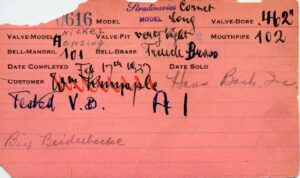 Stradivarius Cornet
0616 MODEL MODEL Long VALVE-BORE .462"
VALVE-M Nickel VALVE-FIT very light MOUTHPIPE 102
BELL-MANDRIL 101 BELL-BRASS French Brass
DATE COMPLETED Feb 17th DATE SOLD
CUSTOMER Wm Hans Bach, Inc
Tested V.B. A 1
Bix Beiderbecke